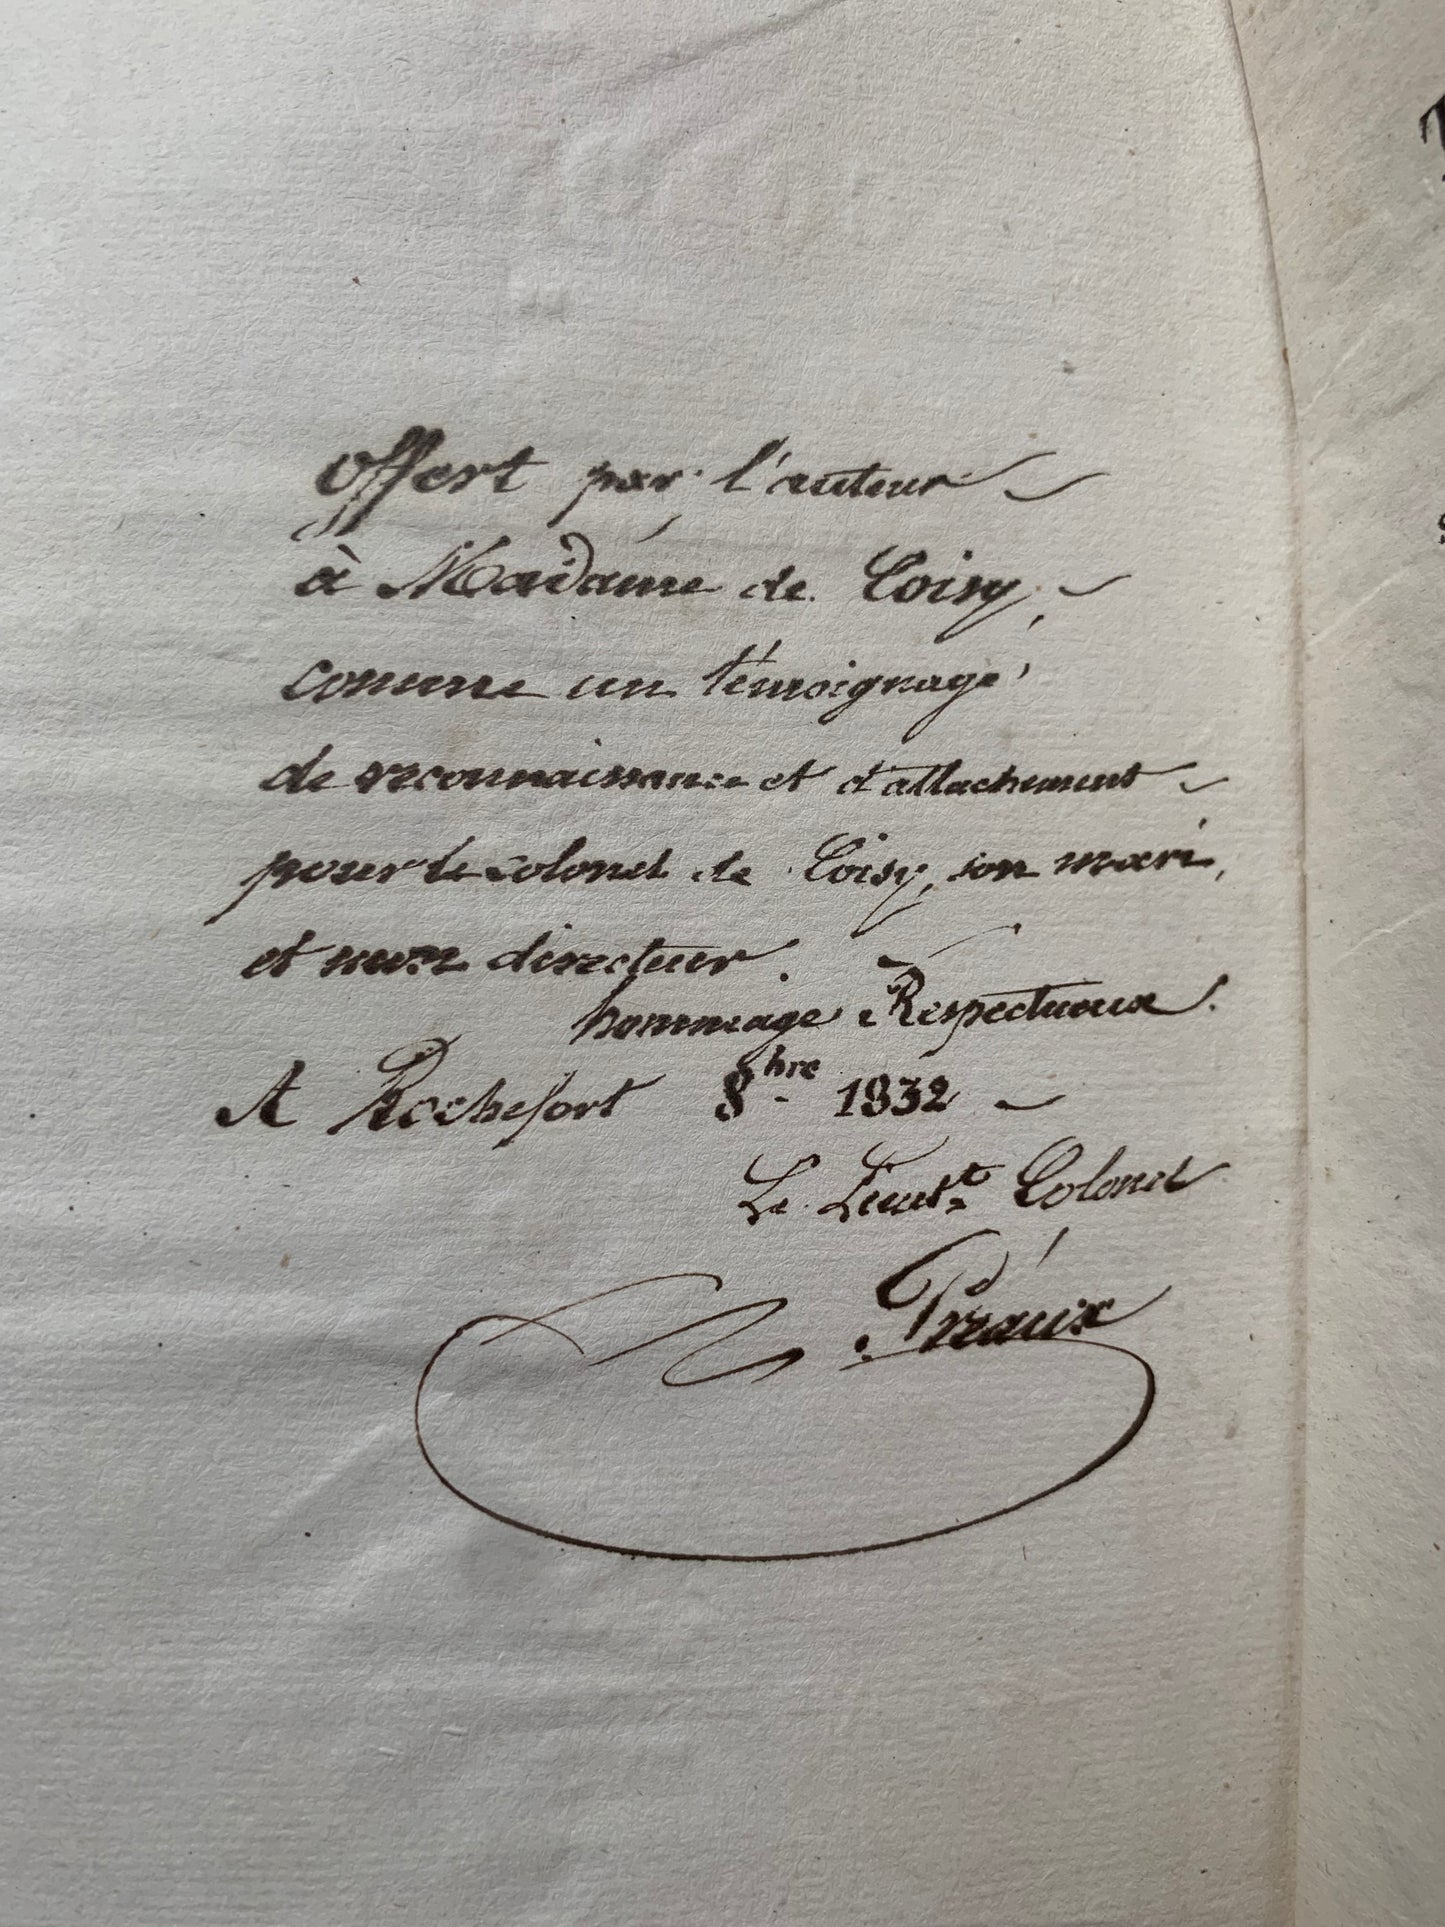 offert par l'auteur
à Madame de Coisy,
comme un témoignage
de reconnaissance et d'attachement
pour le colonel de Coisy, son mari,
et mon directeur.
hommage Respectueux.
A Rochefort 8bre 1832
Le Lieutt Colonel
Préaux